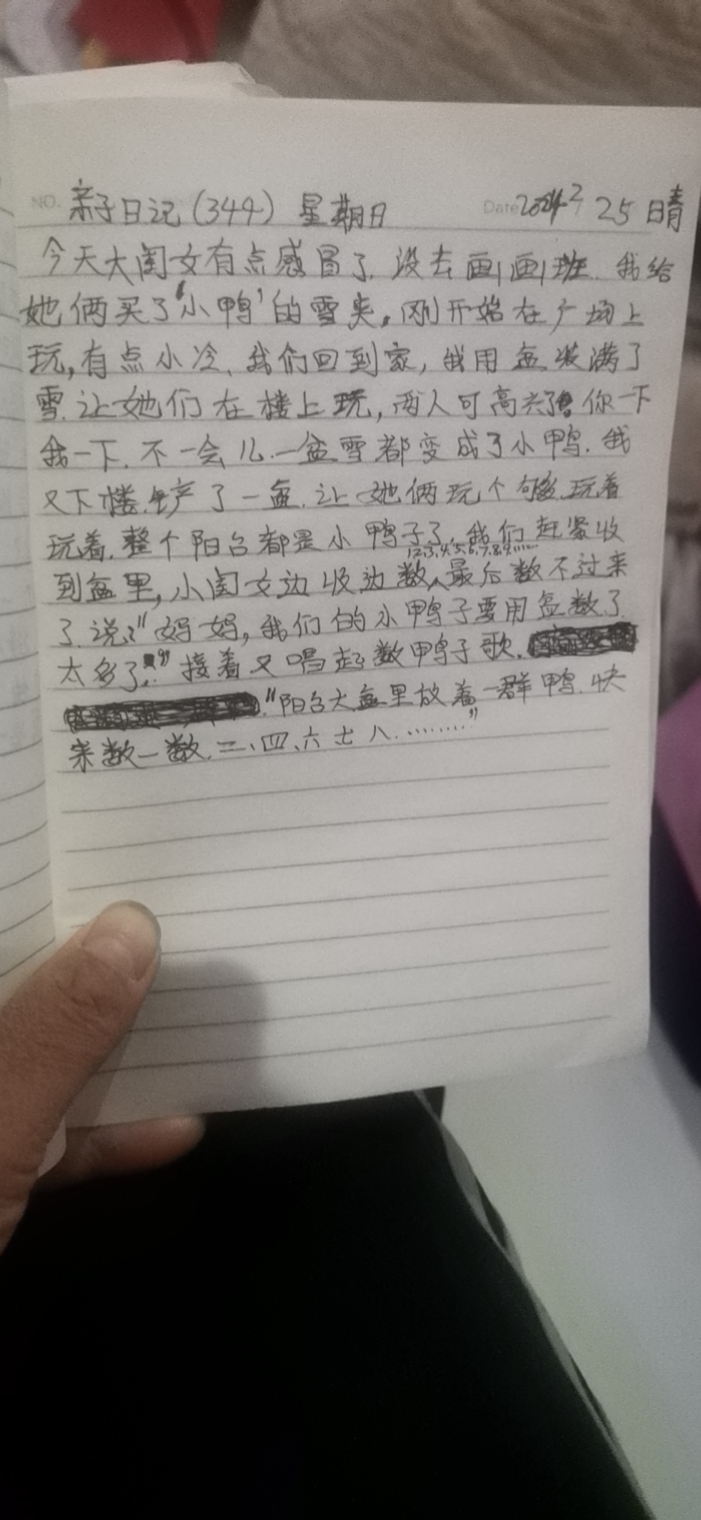 NO. 亲子日记(344) 星期日 Date 2024 2 25 晴
今天大闺女有点感冒了.没去画画班.我给
她俩买了“小鸭”的雪夹。刚开始在广场上
玩,有点小冷.我们回到家,我用盆装满了
雪.让她们在楼上玩,两人可高兴了你一下
我一下.不一会儿.一盆雪都变成了小鸭.我
又下楼.铲了一盆.让她俩玩个够.玩着
玩着.整个阳台都是小鸭子了.我们赶紧收
到盆里,小闺女边收边数1.2.3.4.5.6.7.8.9......最后数不过来
了.说:“妈妈,我们的小鸭子要用盆数了.
太多了!”接着又唱起数鸭子歌.
“阳台大盆里放着一群鸭.快
来数一数.二、四、六七八………”